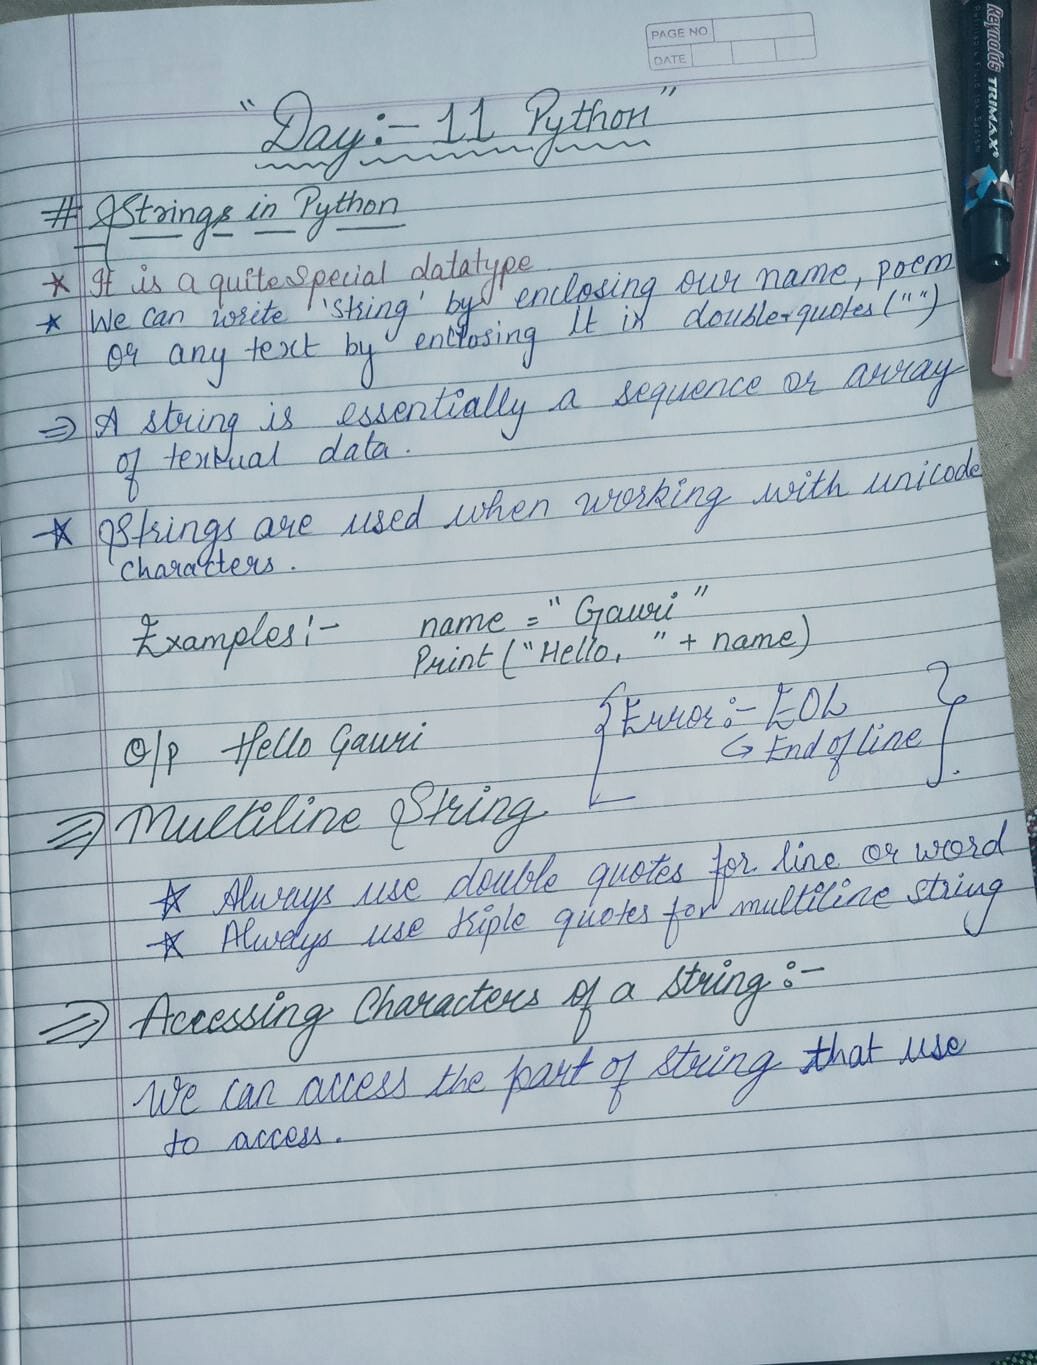 PAGE NO
DATE
"Day:- 11 Python"
# Strings in Python
* It is a quite special datatype
* We can write 'string' by enclosing our name, poem
or any text by enclosing It in double quotes ("")
⇒ A string is essentially a sequence or array
of textual data.
* Strings are used when working with unicode
characters.
Examples:- name = "Gauri"
Print ("Hello, " + name)
{Error:- EOL
↳ End of line}.
O/p Hello Gauri
⇒ Multiline String
* Always use double quotes for line or word
* Always use triple quotes for multiline string
⇒ Accessing Characters of a string:-
We can access the part of string that use
to access.
Reynolds TRIMAX